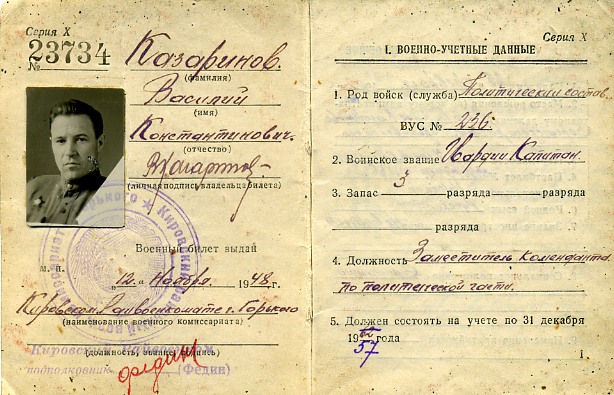 Серия X
№ 23734
Казаринов.
(фамилия)
Василий
(имя)
Константинович.
(отчество)
(личная подпись владельца билета)
Военный билет выдан
м. п.
„12„ Ноября 1948 г.
Кировском Райвоенкомате г. Горького
(наименование военного комиссариата)
Кировский Райвоенком
(должность, звание, подпись)
подполковник (Федин)
Серия X
I. ВОЕННО-УЧЕТНЫЕ ДАННЫЕ
1. Род войск (служба) Политический состав.
ВУС № 236.
2. Воинское звание Гвардии Капитан.
3. Запас 3 разряда разряда
разряда
4. Должность Заместитель Коменданта
по политической части.
5. Должен состоять на учете по 31 декабря
19 57 года
1.